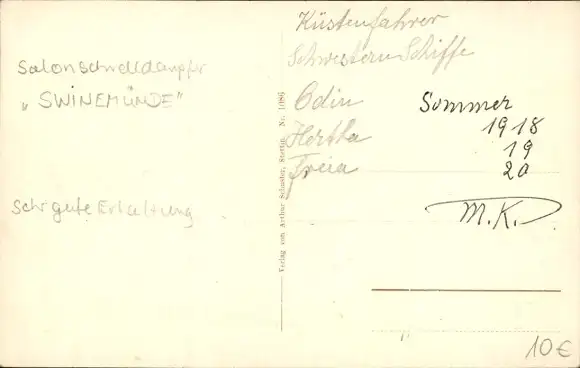 Salonschnelldampfer
„SWINEMÜNDE"
Sehr gute Erhaltung
Verlag von Arthur Schuster, Stettin. Nr. 1086
Küstenfahrer
Schwestern Schiffe
Odin
Hertha
Freia
Sommer
1918
19
20
M.K.
10€